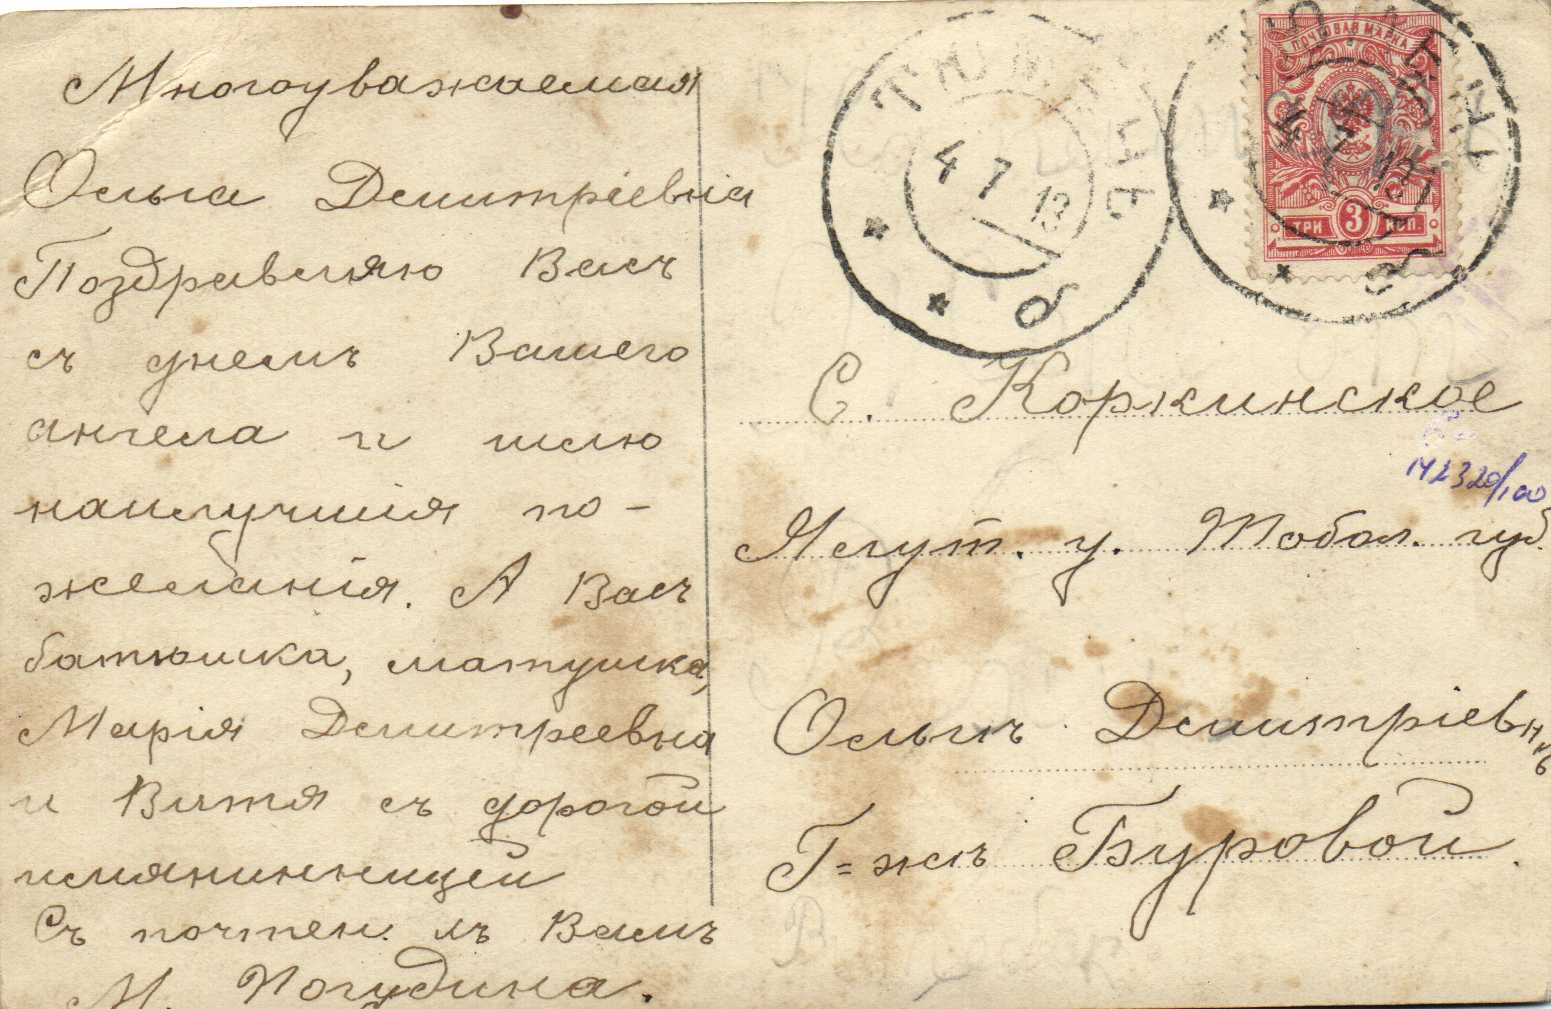 Многоуважаемая
Ольга Дмитріевна
Поздравляю Васъ
съ днемъ Вашего
ангела и шлю
наилучшія по-
желанія. А Васъ
батюшка, матушка,
Марія Дмитреевна
и Витя съ дорогой
имянинницей
Съ почтен. къ Вамъ
М. Погудина.
ТЮМЕНЬ
4 7 13
б
ПОЧТОВАЯ МАРКА
ТРИ 3 КОП.
С. Коркинское
Ялут. у. Тобол. губ.
Ольгѣ Дмитріевнѣ
Г=жѣ Буровой.